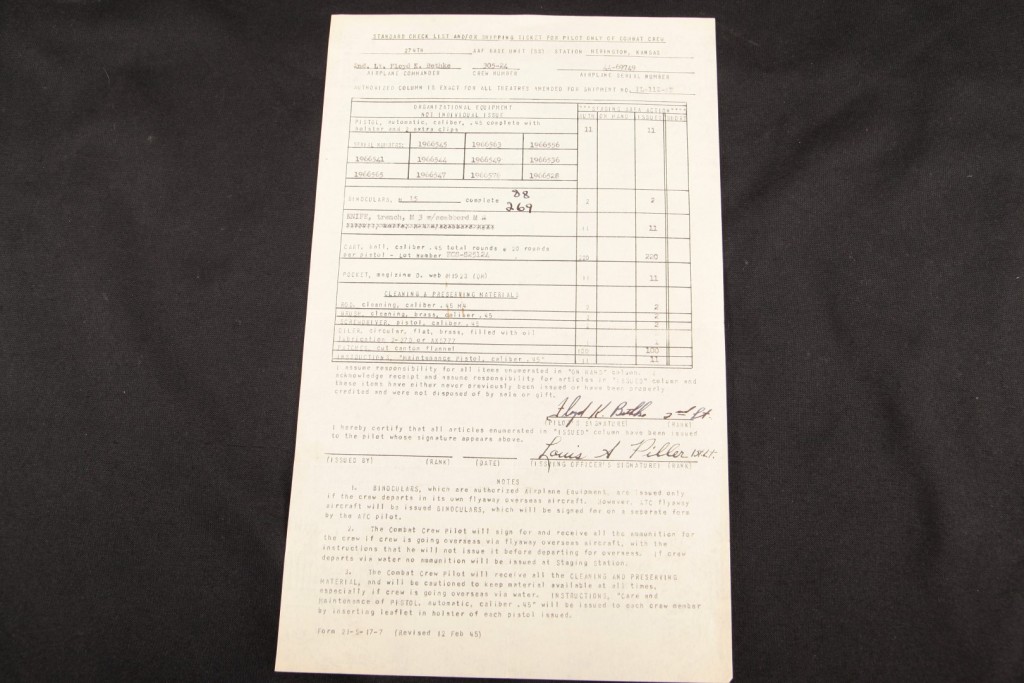 STANDARD CHECK LIST AND/OR SHIPPING TICKET FOR PILOT ONLY OF COMBAT CREW
AAF BASE UNIT STATION HERINGTON, KANSAS
2nd. Lt. Floyd K. Bethke
AIRPLANE COMMANDER CREW NUMBER AIRPLANE SERIAL NUMBER
AUTHORIZED COLUMN IS EXACT FOR ALL THEATRES AMENDED FOR SHIPMENT NO.
ORGANIZATIONAL EQUIPMENT
NOT INDIVIDUAL ISSUE
PISTOL, automatic, caliber, .45 complete with 11 11
holster and 2 extra clips
SERIAL NUMBERS 1966543 1966563 1966556
1966541 1966544 1966549 1966536
1966565 1966547 1966570 1966528
BINOCULARS, M 15 complete 88 2 2
269
KNIFE, trench, M 3 w/scabbard M 11 11
CART, ball, caliber .45 total rounds @ 20 rounds
per pistol - Lot number 220 220
POCKET, magazine D. web M1923 (ON) 11 11
CLEANING & PRESERVING MATERIALS
ROD, cleaning, caliber .45 2
BRUSH, cleaning, brass, caliber .45 2
SCREWDRIVER, pistol, caliber .45 2
OILER, circular, flat, brass, filled with oil
PATCHES, cut canton flannel 100 100
INSTRUCTIONS, "Maintenance Pistol, caliber .45" 11 11
I assume responsibility for all items enumerated in "ON HAND" column. I
acknowledge receipt and assume responsibility for articles in "ISSUED" column and
these items have either never previously been issued or have been properly
credited and were not disposed of by sale or gift.
Floyd K. Bethke 2nd Lt.
(PILOT'S SIGNATURE) (RANK)
I hereby certify that all articles enumerated in "ISSUED" column have been issued
to the pilot whose signature appears above.
Louis A Piller
(ISSUED BY) (RANK) (DATE) (ISSUING OFFICER'S SIGNATURE) (RANK)
NOTES
1. BINOCULARS, which are authorized Airplane Equipment, are issued only
if the crew departs in its own flyaway overseas aircraft. However, ATC flyaway
aircraft will be issued BINOCULARS, which will be signed for on a separate form
by the ATC pilot.
2. The Combat Crew Pilot will sign for and receive all the ammunition for
the crew if crew is going overseas via flyaway overseas aircraft, with the
instructions that he will not issue it before departing for overseas. If crew
departs via water no ammunition will be issued at Staging Station.
3. The Combat Crew Pilot will receive all the CLEANING AND PRESERVING
MATERIAL, and will be cautioned to keep material available at all times,
especially if crew is going overseas via water. INSTRUCTIONS, "Care and
Maintenance of PISTOL, automatic, caliber .45" will be issued to each crew member
by inserting leaflet in holster of each pistol issued.
Form 21-S-17-7 (Revised 12 Feb 45)